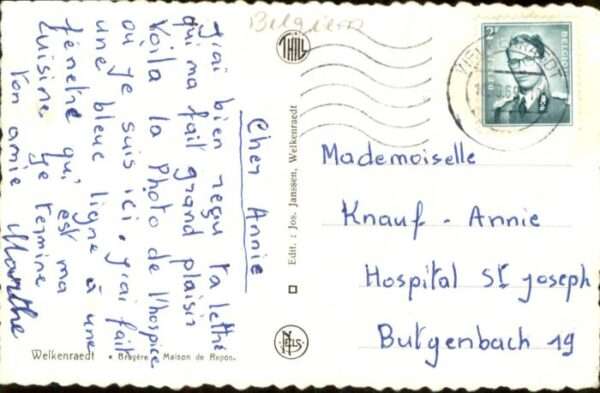 Belgien
Cher Annie
J'ai bien reçu ta lettre
qui ma fait grand plaisir
Voila la photo de l'hospice
ou je suis ici. J'ai fait
une bleue ligne à une
fénetre qui, est ma
cuisine je termine
ton amie Marthe
Welkenraedt • Bruyère Maison de Repos.
THILL
Edit. : Jos. Janssen, Welkenraedt
NELS
BELGIE
Mademoiselle
Knauf - Annie
Hospital St joseph
Butgenbach 19